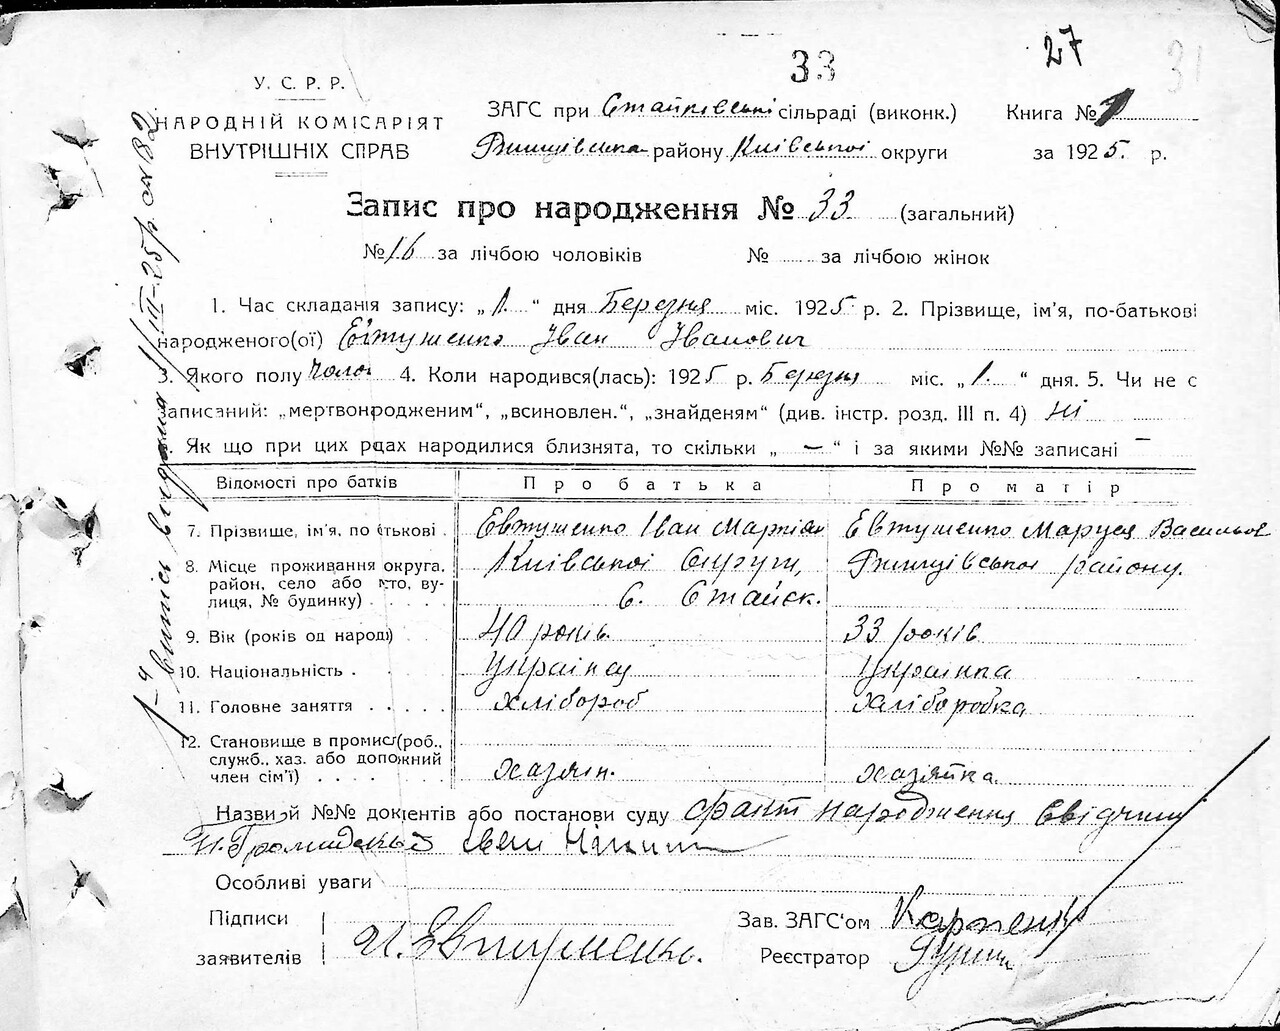 27
31
33
У. С. Р. Р.
НАРОДНІЙ КОМІСАРІЯТ
ВНУТРІШНІХ СПРАВ
ЗАГС при Стайківській сільраді (виконк.)
Книга № 1
Ржищівська району Київської округи
за 1925 р.
Запис про народження № 33 (загальний)
№ 16 за лічбою чоловіків № за лічбою жінок
1. Час складання запису: „1" дня Березня міс. 1925 р. 2. Прізвище, ім'я, по-батькові
народженого(ої) Евтушенко Іван Іванович
3. Якого полу Чолов 4. Коли народився(лась): 1925 р. Березня міс. „1." дня. 5. Чи не є
записаний: „мертвонродженим", „всиновлен.", „знайденям" (див. інстр. розд. III п. 4) Ні
. Як що при цих рдах народилися близнята, то скільки „ — " і за якими №№ записані —
Відомості про батків
Про батька
Про матір
7. Прізвище, ім'я, по тькові
Евтушенко Іван Мартіян
Евтушенко Маруся Васильов
8. Місце проживання округа,
район, село або то, ву-
лиця, № будинку)
Київської округи, Ржищівської району.
с. Стайєк.
9. Вік (років од народ)
40 років
33 років
10. Національність
Українец
Українка
11. Головне заняття
Хлібороб
Хліборобка
12. Становище в промис(роб.,
служб., хаз. або допожний
член сім'ї)
хазяін.
хазяйка.
Назви й №№ докентів або постанови суду факт народження свідчить
Гр. Громадський Іван
Особливі уваги
Підписи
заявителів
И. Евтушенко.
Зав. ЗАГС'ом Карпенко
Реєстратор
1-й випись видана 1/III-25р. за № 82